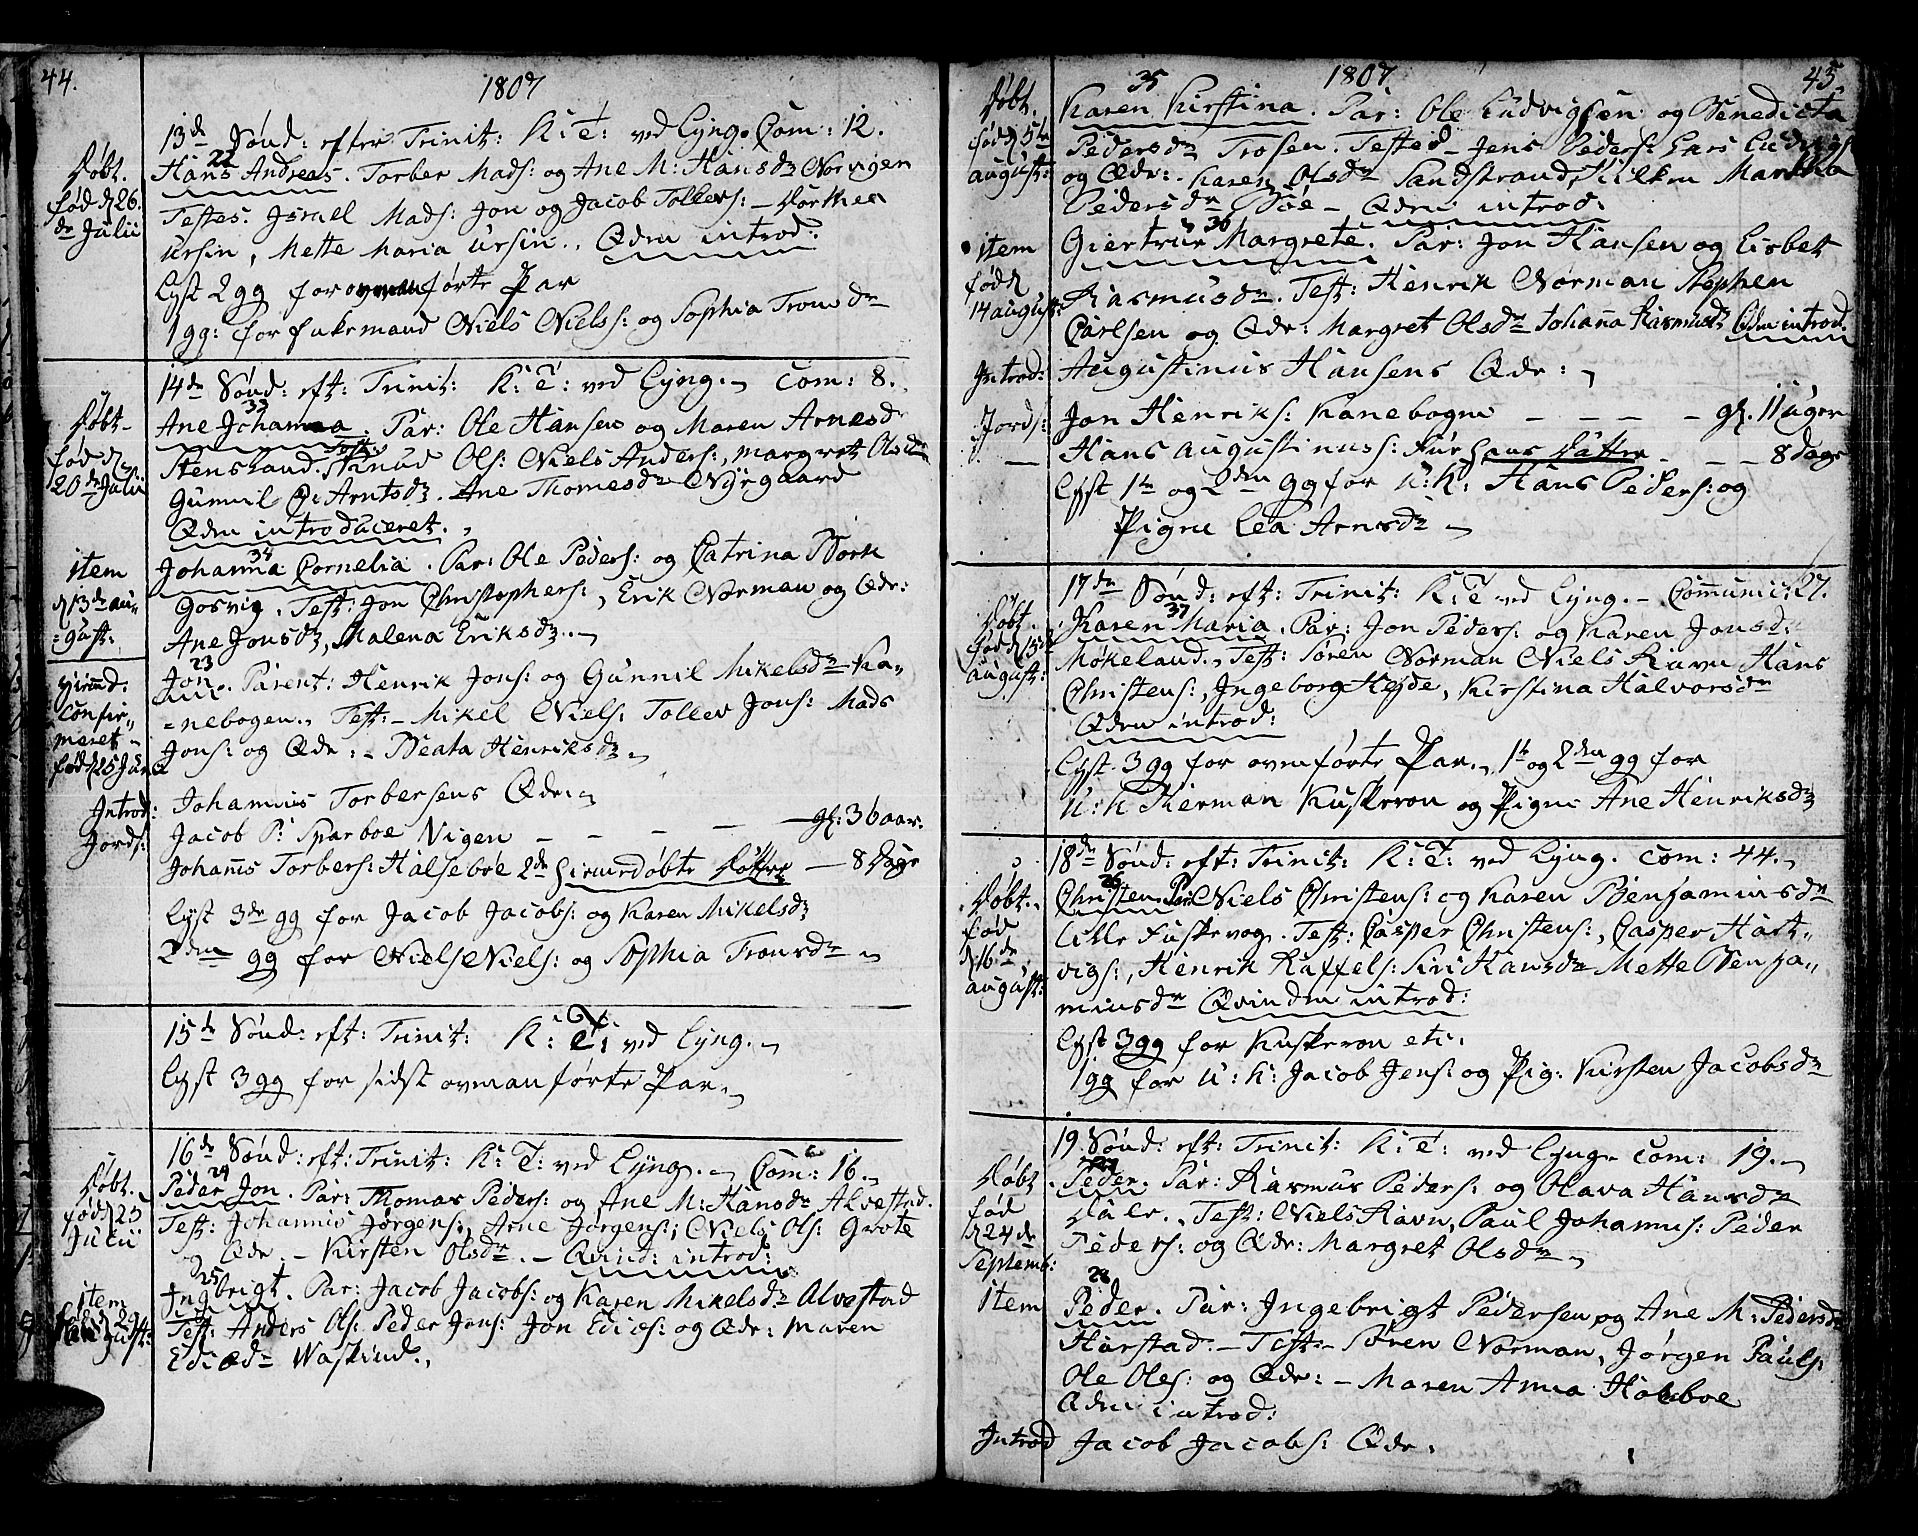 44.
1807
13de Sønd: efter Trinit: K: T: ved Lyng. Com: 12.
Døbt.
fød d 26.
de Julii
22
Hans Andreas. Torber Mads: og Ane M: Hansdr Norvigen
Testes. Israel Mads: Jon og Jacob Tollevs: - Dorthea
Ursin, Mette Maria Ursin., Qdn introd:
Lyst 2 gg for ovenanførte Par
1 gg: for Enkemand Niels Niels: og Sophia Tronsdr
14de Sønd: eft: Trinit: K: T: ved Lyng. Com: 8.
Døbt
fød d
20de Julii
33
Ane Johanna. Par: Ole Hansen og Maren Arnesdr
Stensland. Test: Knud Ols: Niels Anders:, Margret Olsdr
Gunnil Arntsdr. Ane Thomesdr Nyegaard
Qdn introduceret.
item
d 13de au-
=gust:
34
Johanna Cornelia. Par: Ole Peders: og Catrina Bork
Gosvig. Test: Jon Christophers:, Erik Norman og Qdr:
Ane Jonsdr, Malena Eriksdr.
hiemd:
Confir-
meret
fød d 25 Junii
23
Jon. Parent: Henrik Jons: og Gunnil Mikelsdr Ka-
=nebogen., Test: - Mikel Niels: Tollev Jons: Mads
Jons: og Qdr: - Beata Henriksdr
Introd: Johannis Torbersens Qdr:
Jords: Jacob P: Sparboe Vigen - - - - gl: 36 aar.
Johannis Torbers: Halseboe 2de hiemedøbte Døttre - 8 Dage
Lyst 3de gg for Jacob Jacobs: og Karen Mikelsdr
2den gg for Niels Niels: og Sophia Tronsdr
15de Sønd: eft: Trinit: K: T: ved Lyng.
Lyst 3 gg for sidst ovenanførte Par.
16de Sønd: eft: Trinit: K: T: ved Lyng. Com: 16.
Døbt.
fød d 23
Julii
24
Peder Jon. Par: Thomas Peders: og Ane M: Hansdr Alvestad.
Test: Johannis Jørgens:, Arne Jørgens:, Niels Ols: Grote
og Qdr. - Kirsten Olsdr. - Qvind: introd:
item
fød d 29
25
Ingbrigt. Par: Jacob Jacobs: og Karen Mikelsdr Alvestad
Test: Anders Ols: Peder Jons: Jon Edies: og Qdr: Maren
Ediædr Waskind.
1807
45.
Døbt.
fød d 5te
august:
35
Karen Kirstina. Par: Ole Ludvigsen og Benedicta
Pedersdr Trosen. Testes - Jens Peders: Lars Ludvigs:
og Qdr: Karen Olsdr Sandstrand, Martha
Pedersdr Bøe - Qdn introd:
item
fød d
14 august:
36
Giertrue Margrete. Par: Jon Hansen og Lisbet
Rasmusdr. Test: Henrik Norman Stephen
Carlsen og Qdr: Margret Olsdr Johanna Rasmusdr Qdn introd.
Introd: Augustinus Hansens Qdr:
Jords: Jon Henriks: Kanebogen - - - - gl. 11 uger
Hans Augustinuss: Fur hans Datter - - - 8 Dage
Lyst 1te og 2den gg for U: K: Hans Peders: og
Pigen Lea Arnsdr
17de Sønd: eft: Trinit: K: T ved Lyng. - Communic: 27.
Døbt.
fød d 13de
august:
37
Karen Maria. Par: Jon Peders: og Karen Jonsdr
Møkeland., Test: Søren Norman Niels Ravn Hans
Christens:, Ingeborg Heide, Kirstina Halvorsdr
Qdn introd:
Lyst 3 gg for ovenførte Par., 1te og 2den gg for
U: K Sterman Kuskeron og Pigen Ane Henriksdr
18de Sønd: eft: Trinit: K: T: ved Lyng. Com: 44.
Døbt.
fød
d 16de
august:
26
Christen. Par: Niels Christens: og Karen Benjaminsdr
Lille Fuskevog. Test: Casper Christens:, Casper Hart-
vigs:, Henrik Raffels: Siri Hansdr Mette Benja-
minsdr Qvinden introd:
Lyst 3 gg for Kuskeron etc:
1 gg for U: K: Jacob Jens: og Pig: Kirsten Jacobsdr
19. Sønd: eft: Trinit: K: T: ved Lyng. Com: 19.
Døbt
fød
d 24de
Septemb:
27
Peder. Par: Rasmus Peders: og Olava Hansdr
Dale., Test: Niels Ravn, Paul Johannes: Peder
Peders: og Qdr: Margret Olsdr
item
28
Peder. Par: Ingebrigt Pedersen og Ane M: Pedersdr
Harstad. - Test - Søren Norman, Jørgen Pauls:
Ole Oles: og Qdr: - Maren Anna Holeboe
Qdn introd:
Introd Jacob Jacobs: Qdr.